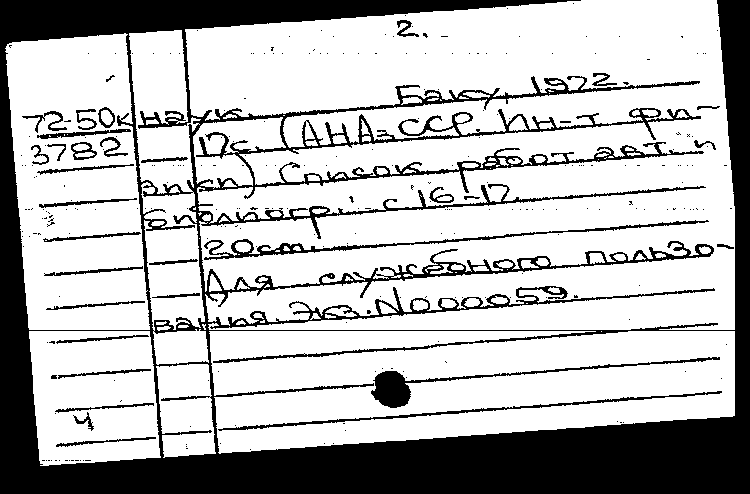 2.
72-50к наук. Баку, 1972.
3782 17с. (АН Аз ССР. Ин-т фи-
зики) Список работ авт. и
библиогр.: с 16-17.
20см.
Для служебного пользо-
вания. Экз. N000059.
Ч